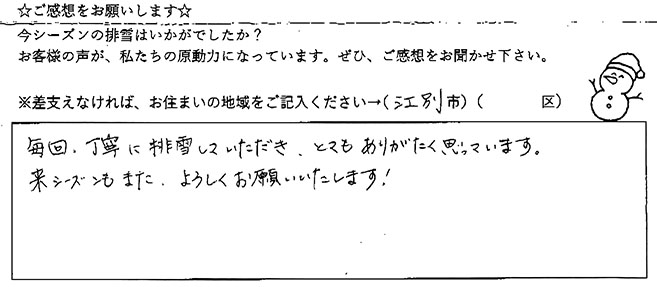 ☆ご感想をお願いします☆
今シーズンの排雪はいかがでしたか？
お客様の声が、私たちの原動力になっています。ぜひ、ご感想をお聞かせ下さい。
※差支えなければ、お住まいの地域をご記入ください→(江別市)(　　　区)
毎回、丁寧に排雪していただき、とてもありがたく思っています。
来シーズンもまた、よろしくお願いいたします!